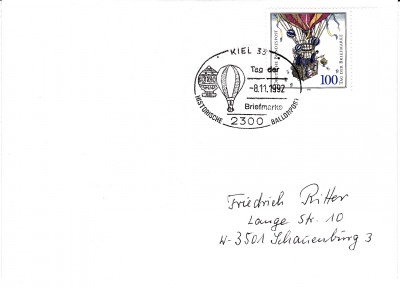 KIEL 33
Tag der
-8.11.1992
Briefmarke
HISTORISCHE BALLONPOST
2300
100
TAG DER BRIEFMARKE
Friedrich Ritter
Lange Str. 10
W-3501 Schauenburg 3